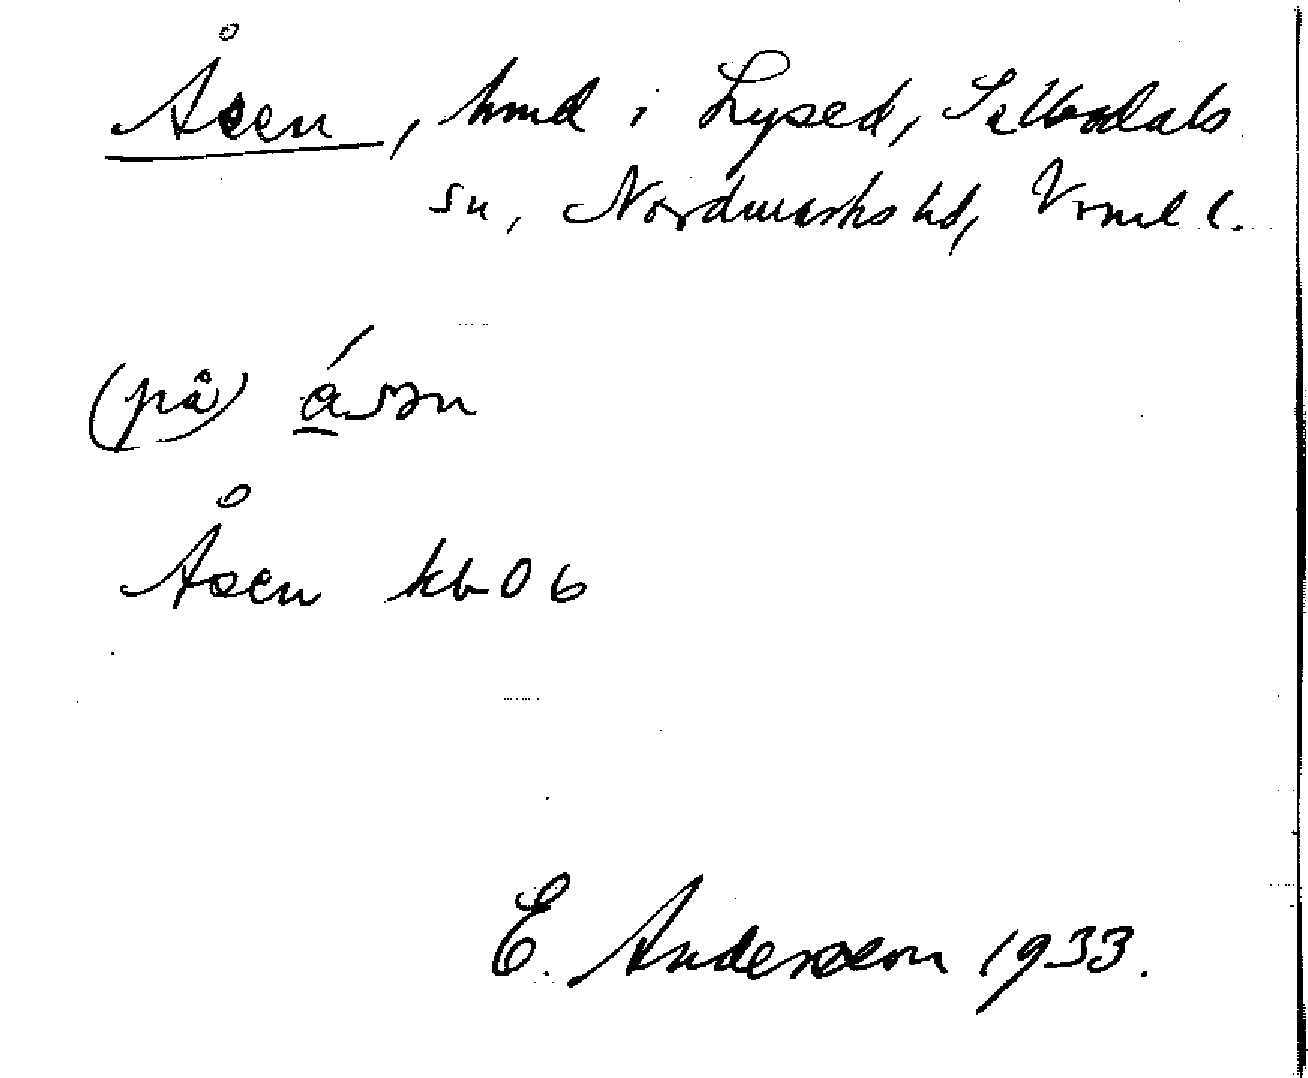 Åsen, hmd i Lysed, Sillbodals
sn, Nordmarks hd, Vrml l.
(på) á̲sən
Åsen kb 06
E. Andersson 1933.